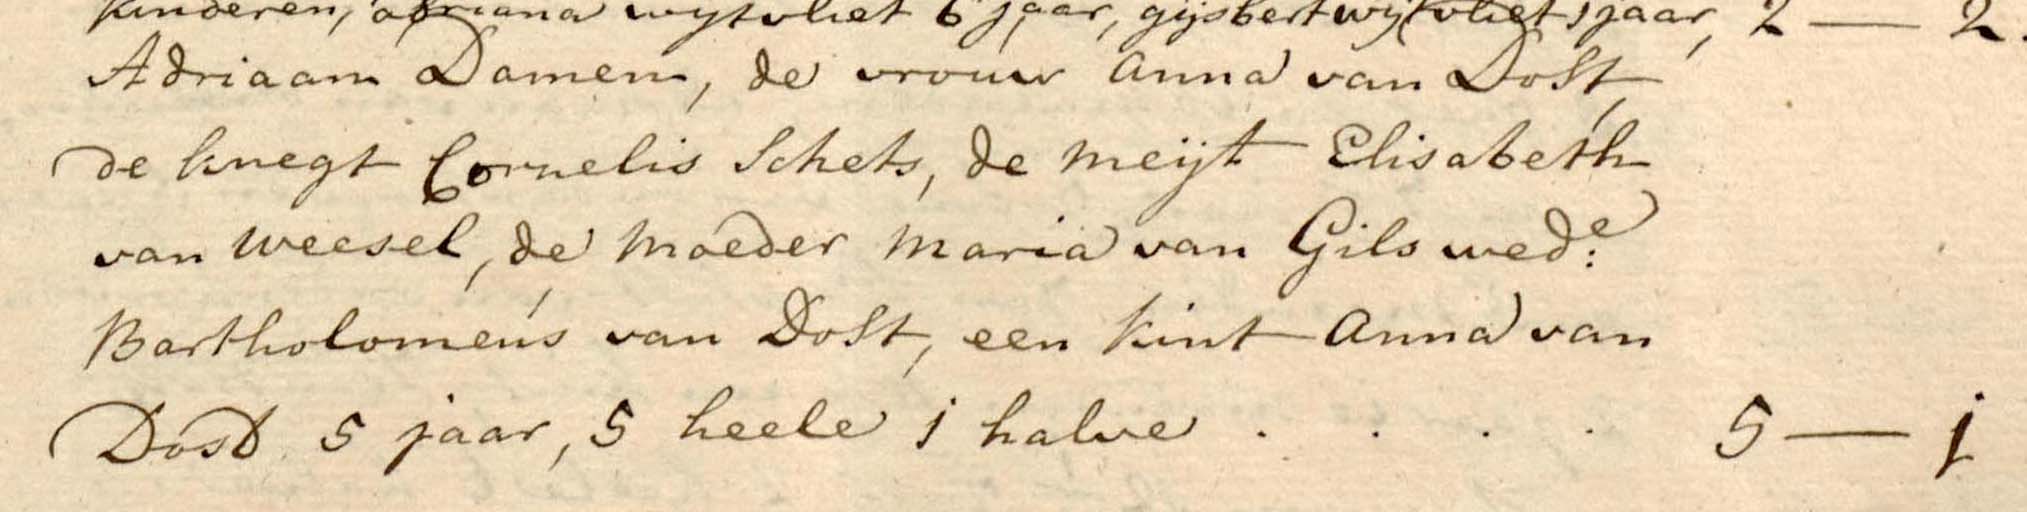 kinderen, adriana wijtvliet 6 jaar, gijsbert wijtvliet 1 jaar, 2 — 2.
Adriaan Damen, de vrouw Anna van Dost,
de knegt Cornelis Schets, de meijt Elisabeth
van Weesel, de moeder Maria van Gils wed:e
Bartholomeus van Dost, een kint Anna van
Dost 5 jaar, 5 heele 1 halve . . . . 5 — 1